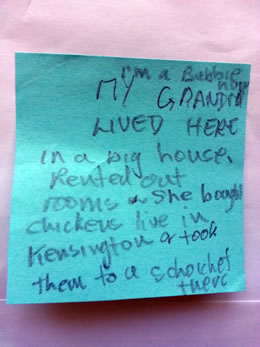 I'm a Bubbie now
MY GRANDMA
LIVED HERE
in a big house.
Rented out
rooms & She bought
chickens live in
Kensington & took
them to a schochet
there